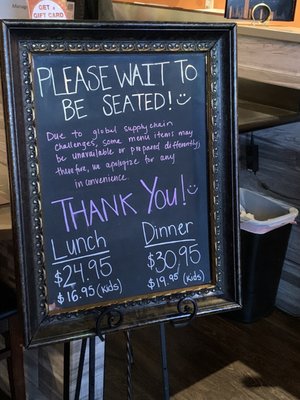 GET A
GIFT CARD
PLEASE WAIT TO
BE SEATED! :)
Due to global supply chain
challenges, some menu items may
be unavailable or prepared differently,
therefore, we apologize for any
inconvenience.
THANK YOU! :)
Lunch Dinner
$24.95 $30.95
$16.95 (kids) $19.95 (kids)